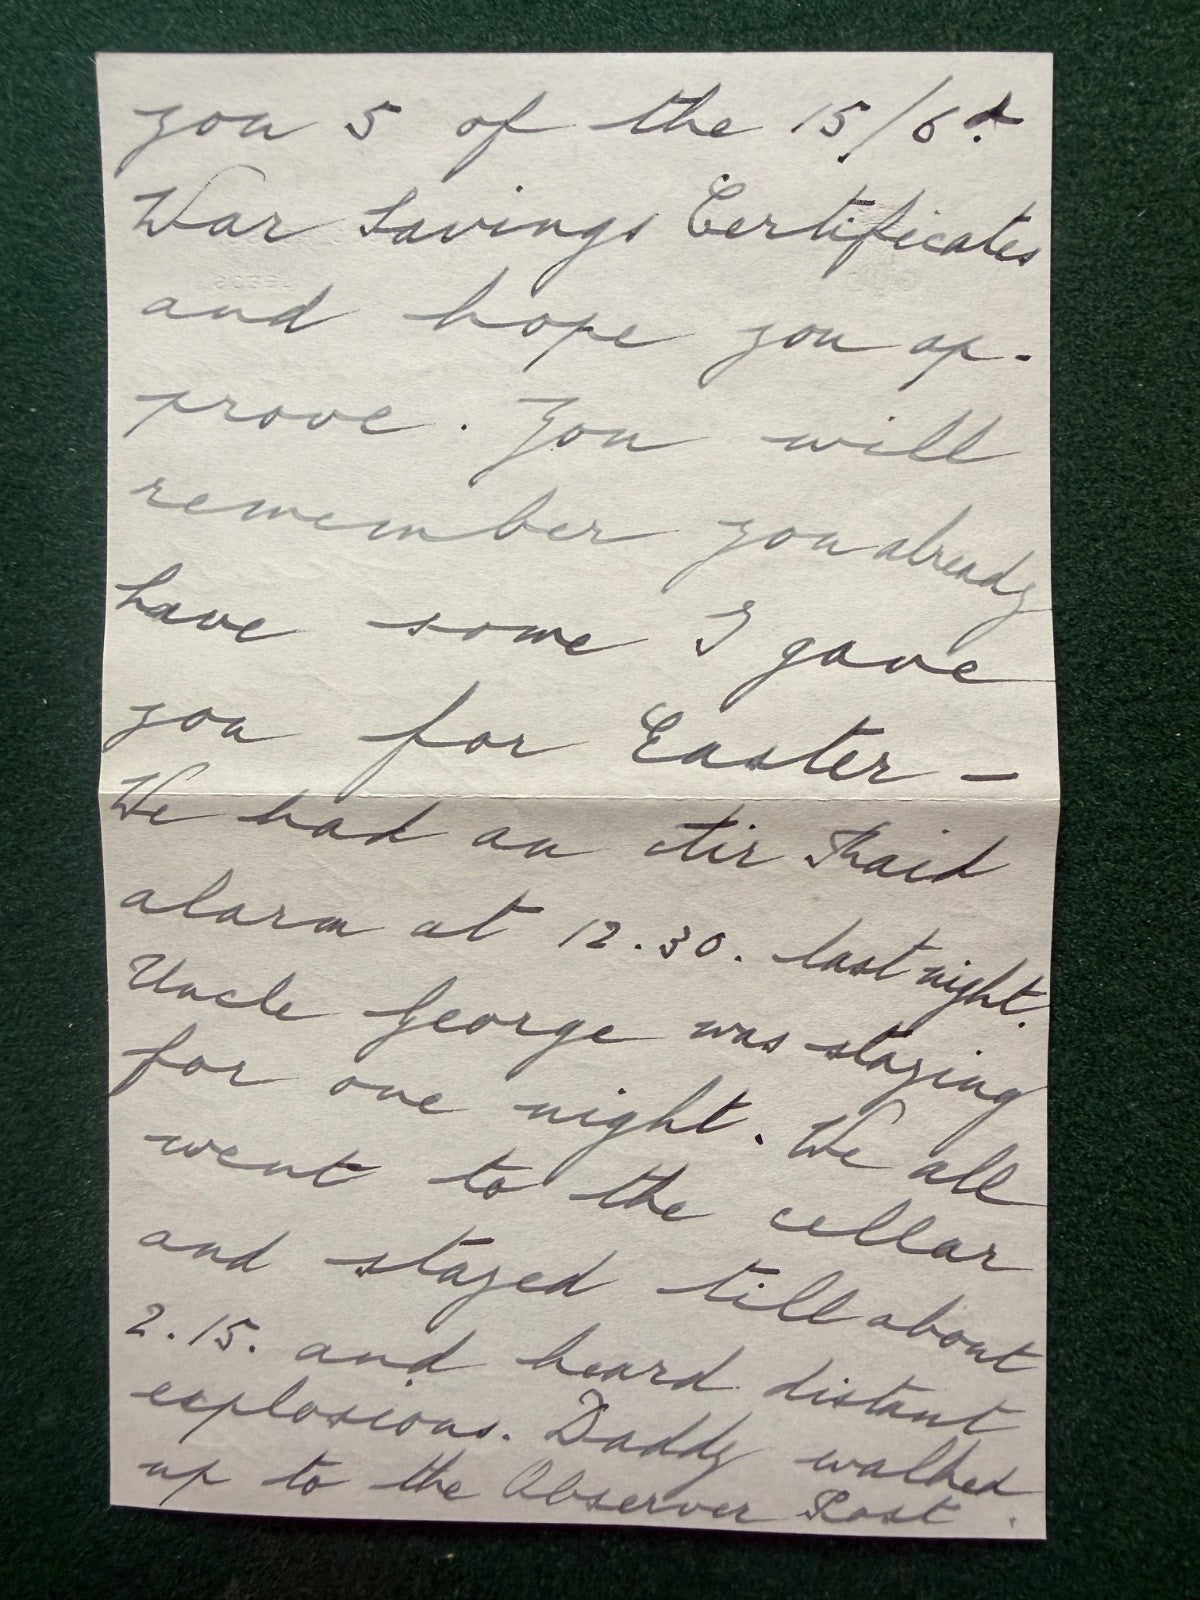 you 5 of the 15/6d.
War Savings Certificates
and hope you ap-
prove. You will
remember you already
have some I gave
you for Easter –
We had an Air Raid
alarm at 12.30. last night.
Uncle George was staying
for one night. We all
went to the cellar
and stayed till about
2.15. and heard distant
explosions. Daddy walked
up to the Observer Post.